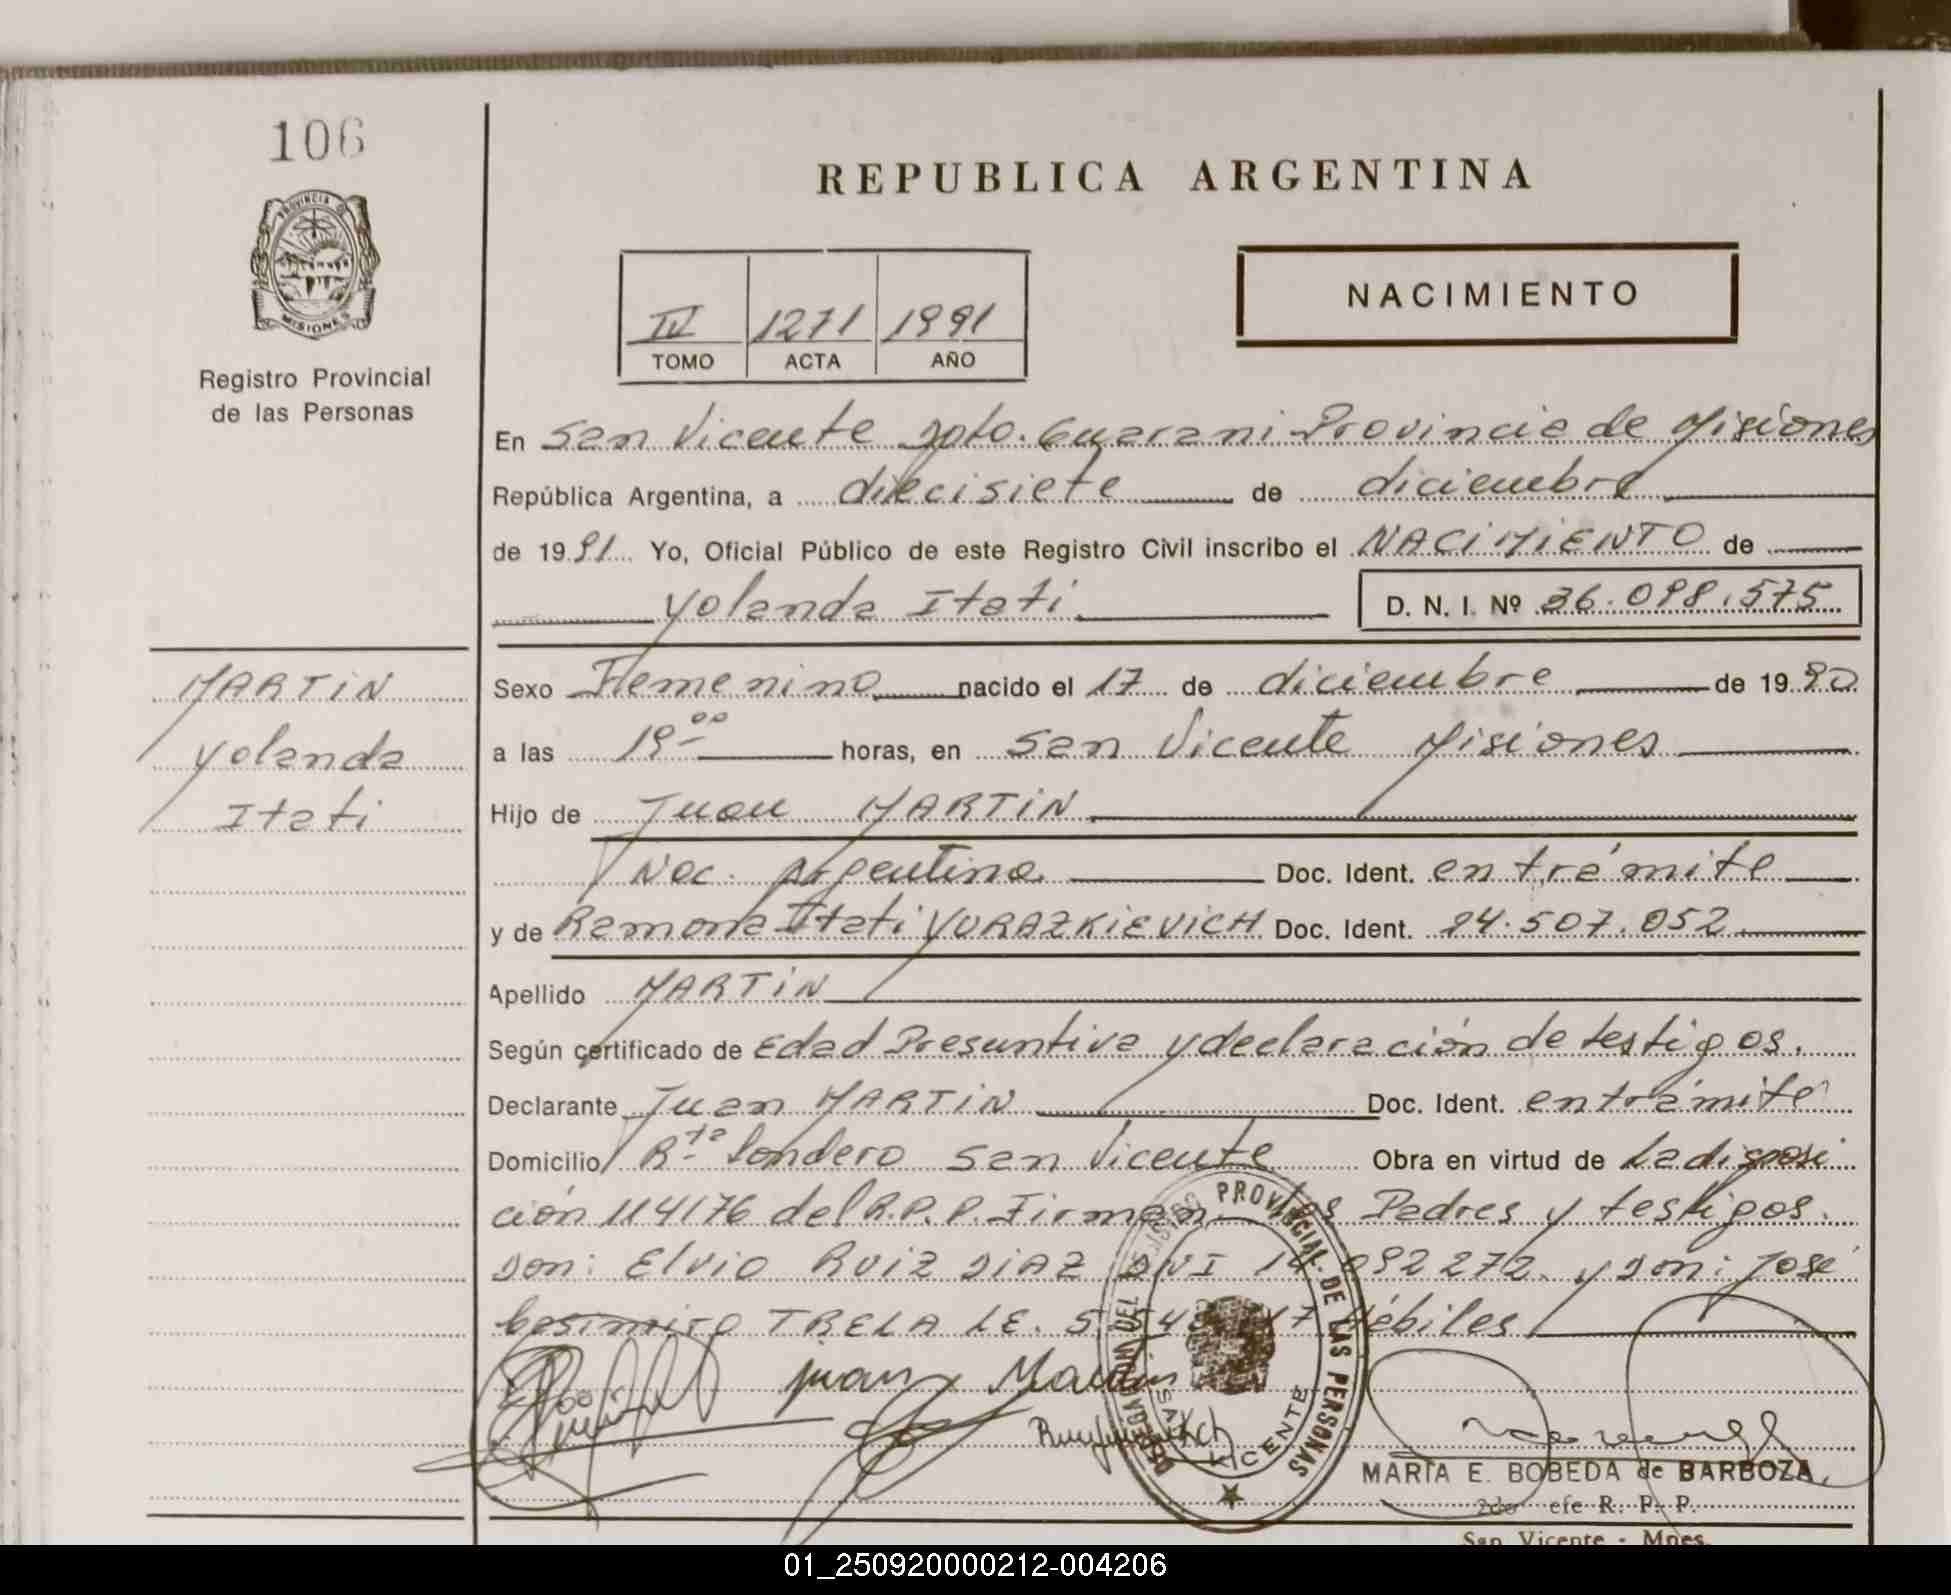 106
REPUBLICA ARGENTINA
PROVINCIA DE
MISIONES
Registro Provincial
de las Personas
IV 1271 1991
TOMO ACTA AÑO
NACIMIENTO
En San Vicente Dpto. Guarani Provincia de Misiones
República Argentina, a diecisiete de diciembre
de 1991 Yo, Oficial Público de este Registro Civil inscribo el NACIMIENTO de
Yolanda Itati D. N. I. Nº 36.098.575
MARTIN
Yolanda
Itati
Sexo Femenino nacido el 17 de diciembre de 1990
a las 19 00 horas, en San Vicente Misiones
Hijo de Juan MARTIN
Nac. Argentina Doc. Ident. en trámite
y de Ramona Itati YURAZKIEVICH Doc. Ident. 24.507.052
Apellido MARTIN
Según certificado de Edad Presuntiva y declaración de testigos.
Declarante Juan MARTIN Doc. Ident. en trámite
Domicilio Rta Londero San Vicente Obra en virtud de La disposi
ción 114176 del R.P.P. Firman los Padres y testigos.
Don: Elvio RUIZ DIAZ DNI 092272 y Don: José
Casimiro TRELA LE. hábiles
Juan Martin
DELEGACION DEL REGISTRO PROVINCIAL DE LAS PERSONAS
SAN VICENTE
MARIA E. BOBEDA de BARBOZA
2do efe R. P. P.
San Vicente - Mnes.
01_250920000212-004206